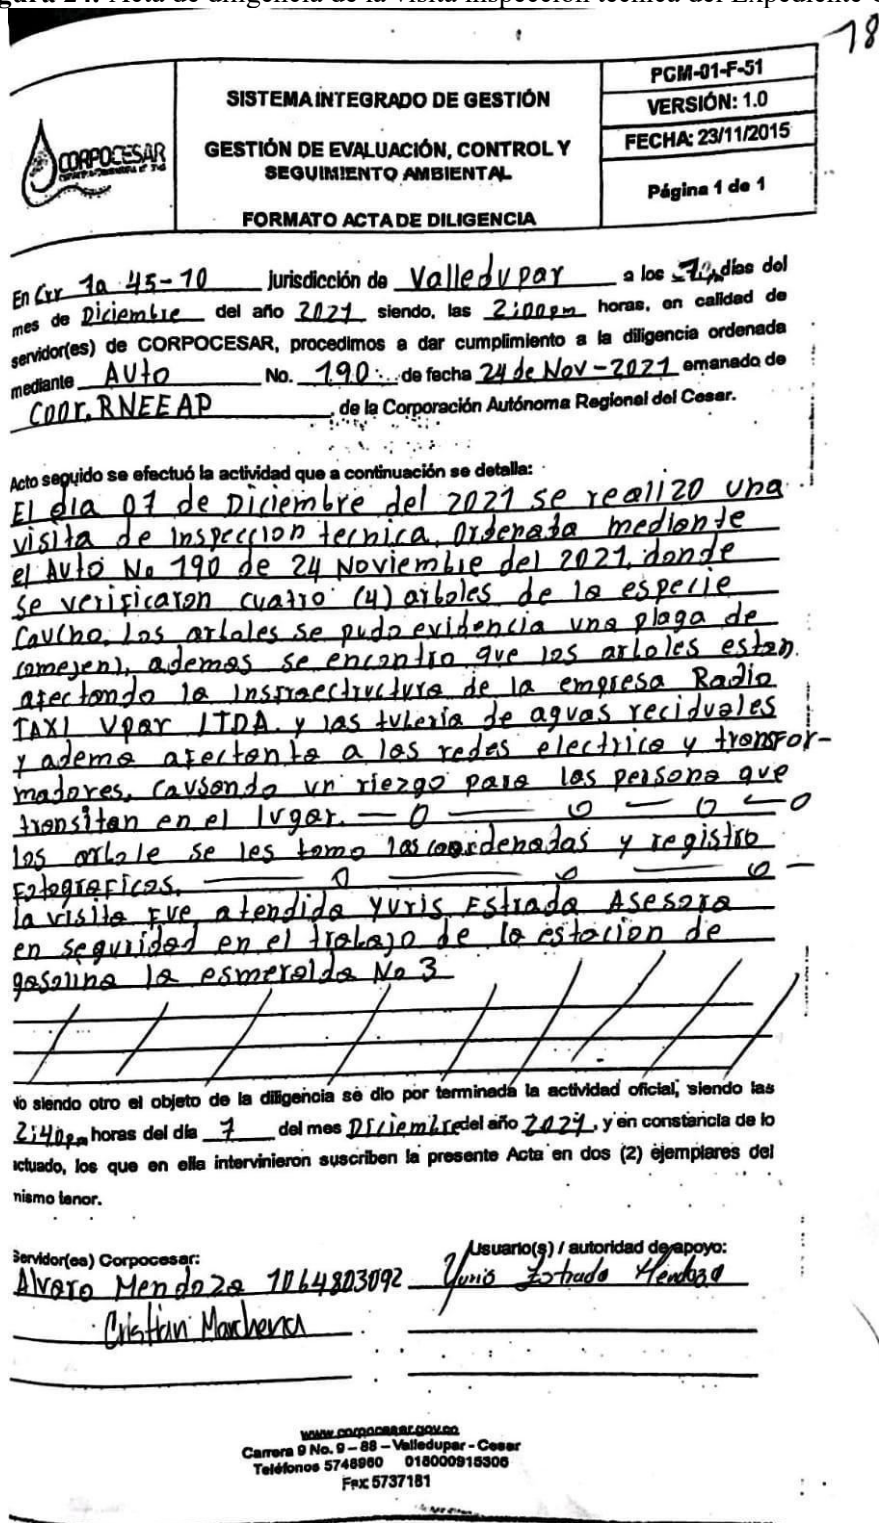 Acta de diligencia de la visita inspección técnica del Expediente
18
CORPOCESAR
SISTEMA INTEGRADO DE GESTIÓN
GESTIÓN DE EVALUACIÓN, CONTROL Y
SEGUIMIENTO AMBIENTAL
FORMATO ACTA DE DILIGENCIA
PCM-01-F-51
VERSIÓN: 1.0
FECHA: 23/11/2015
Página 1 de 1
En Crr 1a 45-10 jurisdicción de Valledupar a los días del
mes de Diciembre del año 2021 siendo, las 2:00pm horas, en calidad de
servidor(es) de CORPOCESAR, procedimos a dar cumplimiento a la diligencia ordenada
mediante AUto No. 190 de fecha 24 de Nov-2021 emanado de
Coor. RNEEAP, de la Corporación Autónoma Regional del Cesar.
Acto seguido se efectuó la actividad que a continuación se detalla:
El dia 01 de Diciembre del 2021 se realizo una
visita de inspeccion tecnica, Ordenada mediante
el AUto No 190 de 24 Noviembre del 2021, donde
se verificaron cuatro (4) arboles de la especie
Caucho, los arboles se pudo evidencia una plaga de
comejen), ademas se encontro que los arboles estan
afectando la insfraectructura de la empresa Radio
TAXI Vpar LTDA. y las tuberia de aguas reciduales
y adema afectanta a las redes electrica y transfor-
madores, causando un riezgo para las persona que
transitan en el lugar.
los arbole se les tomo las coordenadas y registro
Fotograficos.
la visita Fue atendida Yuris Estrada Asesora
en seguridad en el trabajo de la estacion de
gasolina la esmeralda No 3
No siendo otro el objeto de la diligencia se dio por terminada la actividad oficial, siendo las
2:40pm horas del día 1 del mes Diciembre del año 2021, y en constancia de lo
actuado, los que en ella intervinieron suscriben la presente Acta en dos (2) ejemplares del
mismo tenor.
Servidor(es) Corpocesar:
Usuario(s) / autoridad de apoyo:
Alvaro Mendoza 1064803092
Yuris Estrada Mendoza
Cristian Marchena
www.corpocesar.gov.co
Carrera 9 No. 9 – 88 – Valledupar - Cesar
Teléfonos 5748960 018000915306
Fax: 5737181